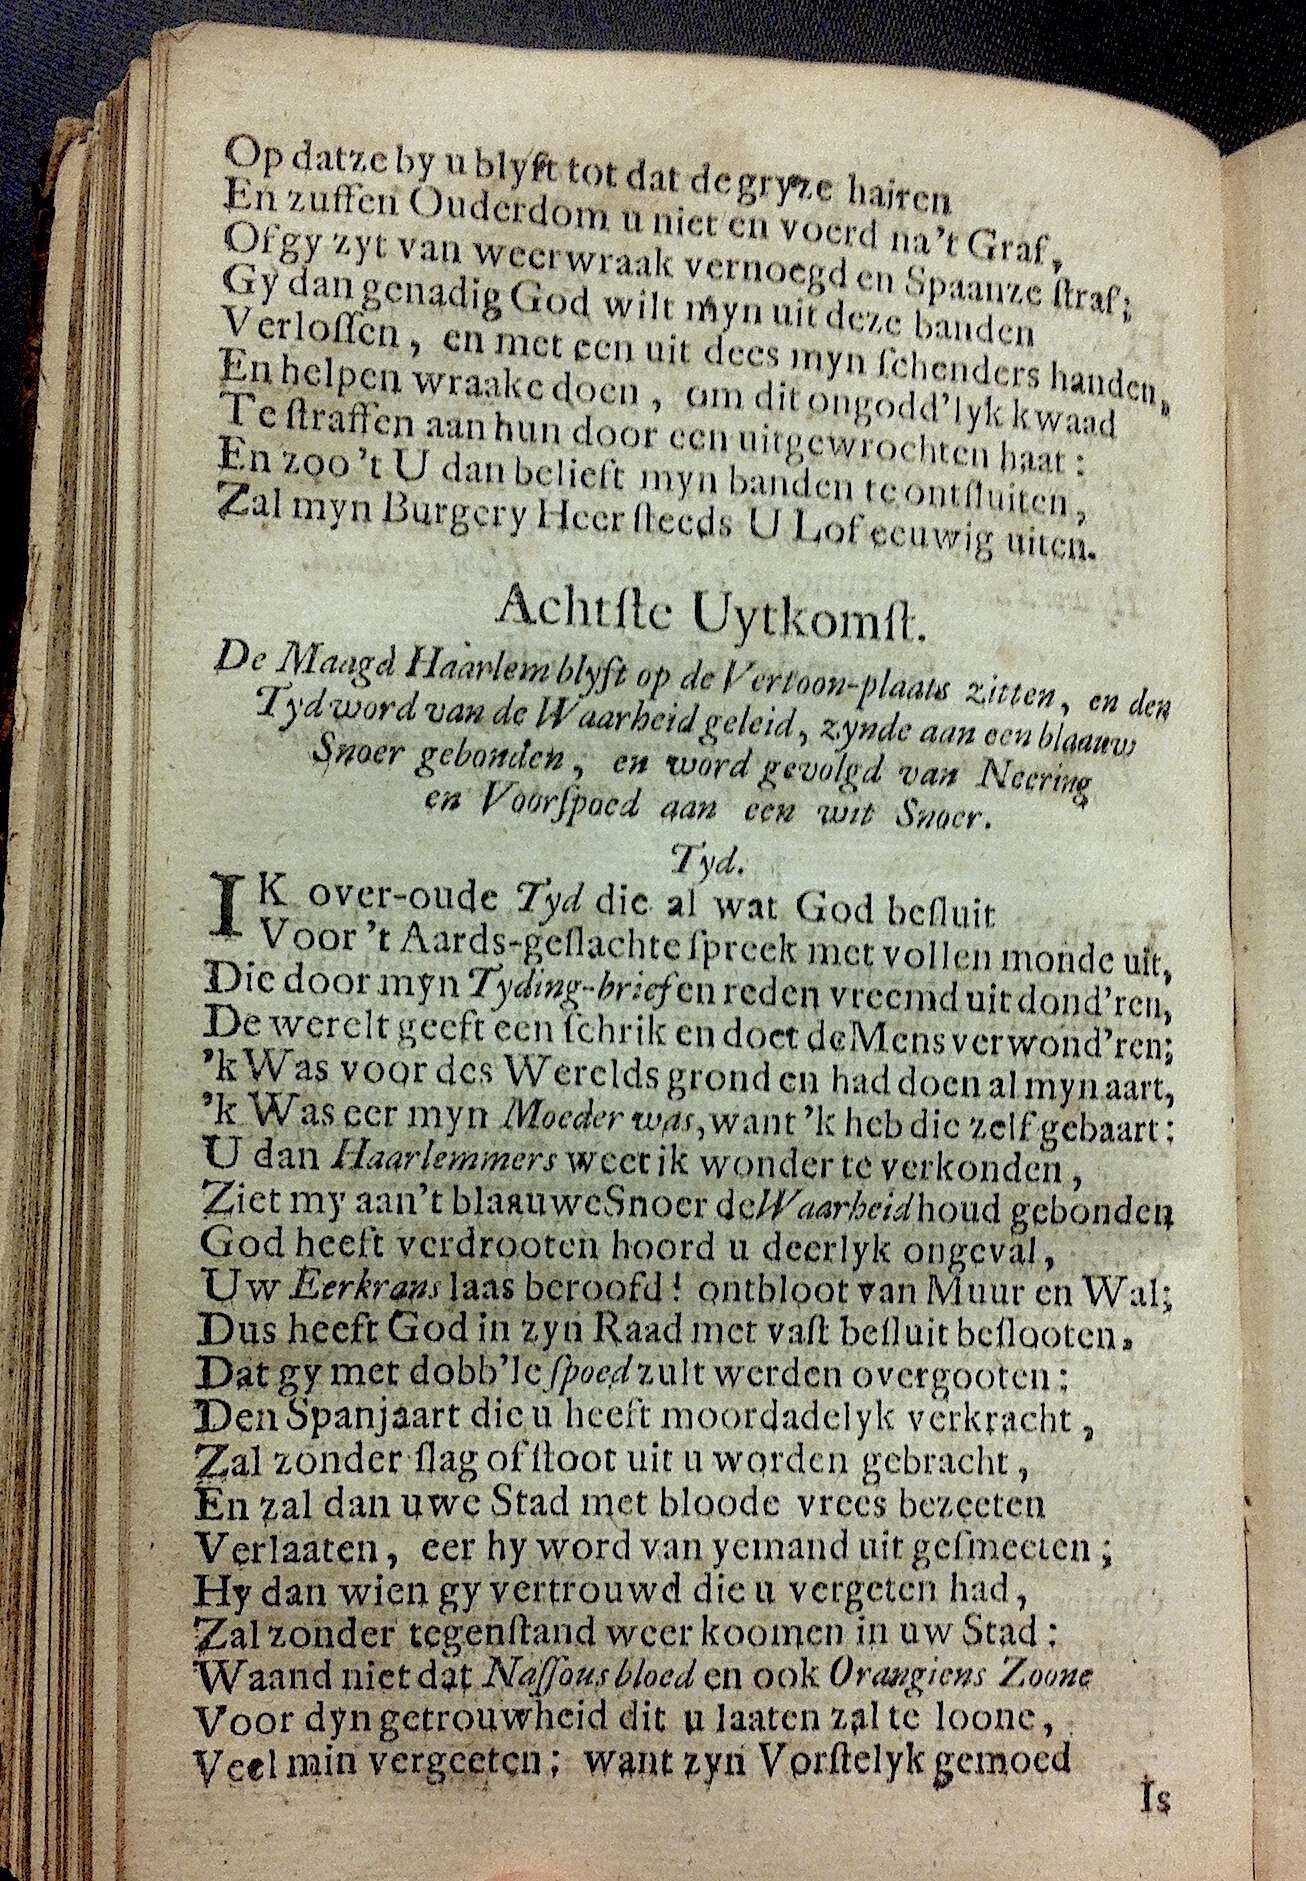 Op datze by u blyft tot dat de gryze hairen
En zuffen Ouderdom u niet en voerd na't Graf,
Of gy zyt van weerwraak vernoegd en Spaanze ſtraf;
Gy dan genadig God wilt myn uit deze banden
Verloſſen, en met een uit dees myn ſchenders handen,
En helpen wraake doen, om dit ongodd'lyk kwaad
Te ſtraffen aan hun door een uitgewrochten haat:
En zoo 't U dan belieft myn banden te ontſluiten,
Zal myn Burgery Heer ſteeds U Lof eeuwig uiten.
Achtſte Uytkomſt.
De Maagd Haarlem blyft op de Vertoon-plaats zitten, en den
Tyd word van de Waarheid geleid, zynde aan een blaauw
Snoer gebonden, en word gevolgd van Neering
en Voorſpoed aan een wit Snoer.
Tyd.
IK over-oude Tyd die al wat God beſluit
Voor 't Aards-geſlachte ſpreek met vollen monde uit,
Die door myn Tyding-brief en reden vreemd uit dond'ren,
De werelt geeft een ſchrik en doet de Mens verwond'ren;
'k Was voor des Werelds grond en had doen al myn aart,
'k Was eer myn Moeder was, want 'k heb die zelf gebaart:
U dan Haarlemmers weet ik wonder te verkonden,
Ziet my aan't blaauwe Snoer de Waarheid houd gebonden
God heeft verdrooten hoord u deerlyk ongeval,
Uw Eerkrans laas beroofd! ontbloot van Muur en Wal;
Dus heeft God in zyn Raad met vaſt beſluit beſlooten,
Dat gy met dobb'le ſpoed zult werden overgooten:
Den Spanjaart die u heeft moordadelyk verkracht,
Zal zonder ſlag of ſtoot uit u worden gebracht,
En zal dan uwe Stad met bloode vrees bezeeten
Verlaaten, eer hy word van yemand uit geſmeeten;
Hy dan wien gy vertrouwd die u vergeten had,
Zal zonder tegenſtand weer koomen in uw Stad:
Waand niet dat Naſſous bloed en ook Orangiens Zoone
Voor dyn getrouwheid dit u laaten zal te loone,
Veel min vergeeten; want zyn Vorſtelyk gemoed
Is